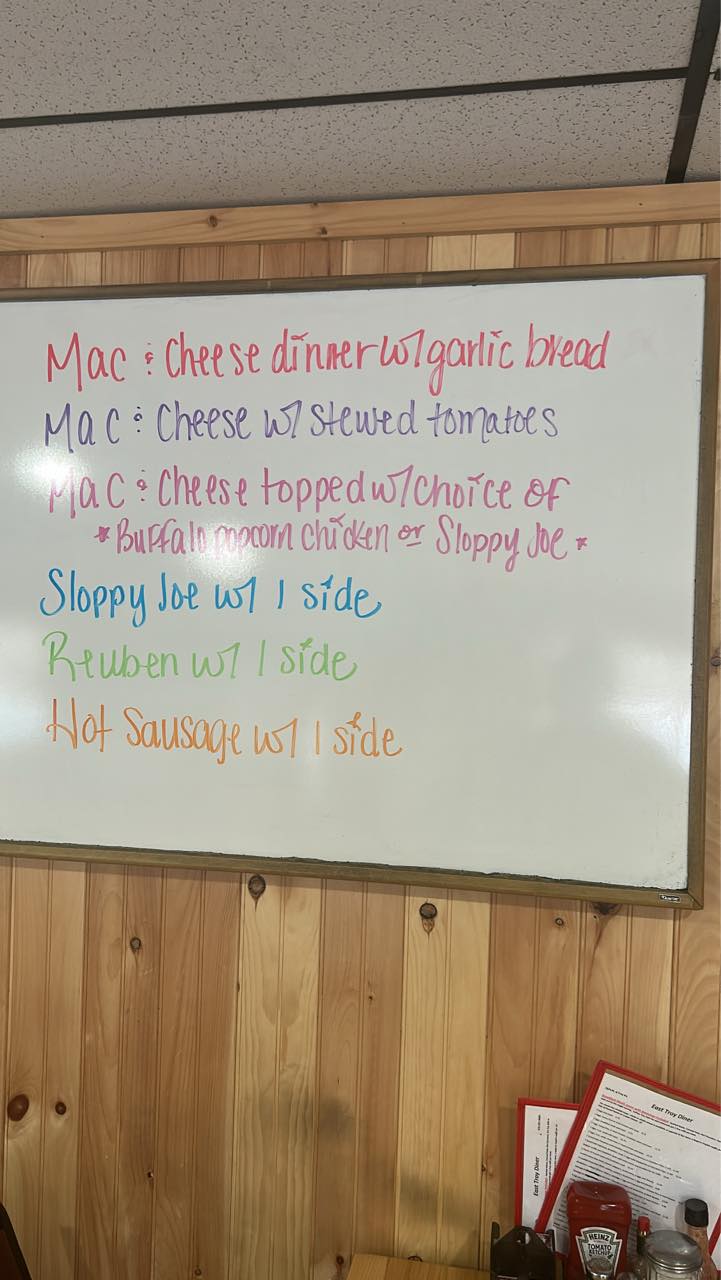 Mac & Cheese dinner w/ garlic bread
Mac & Cheese w/ stewed tomatoes
Mac & Cheese topped w/ choice of
*Buffalo popcorn chicken or Sloppy Joe*
Sloppy Joe w/ 1 side
Reuben w/ 1 side
Hot Sausage w/ 1 side
East Troy Diner
East Troy Diner
HEINZ
TOMATO
KETCHUP